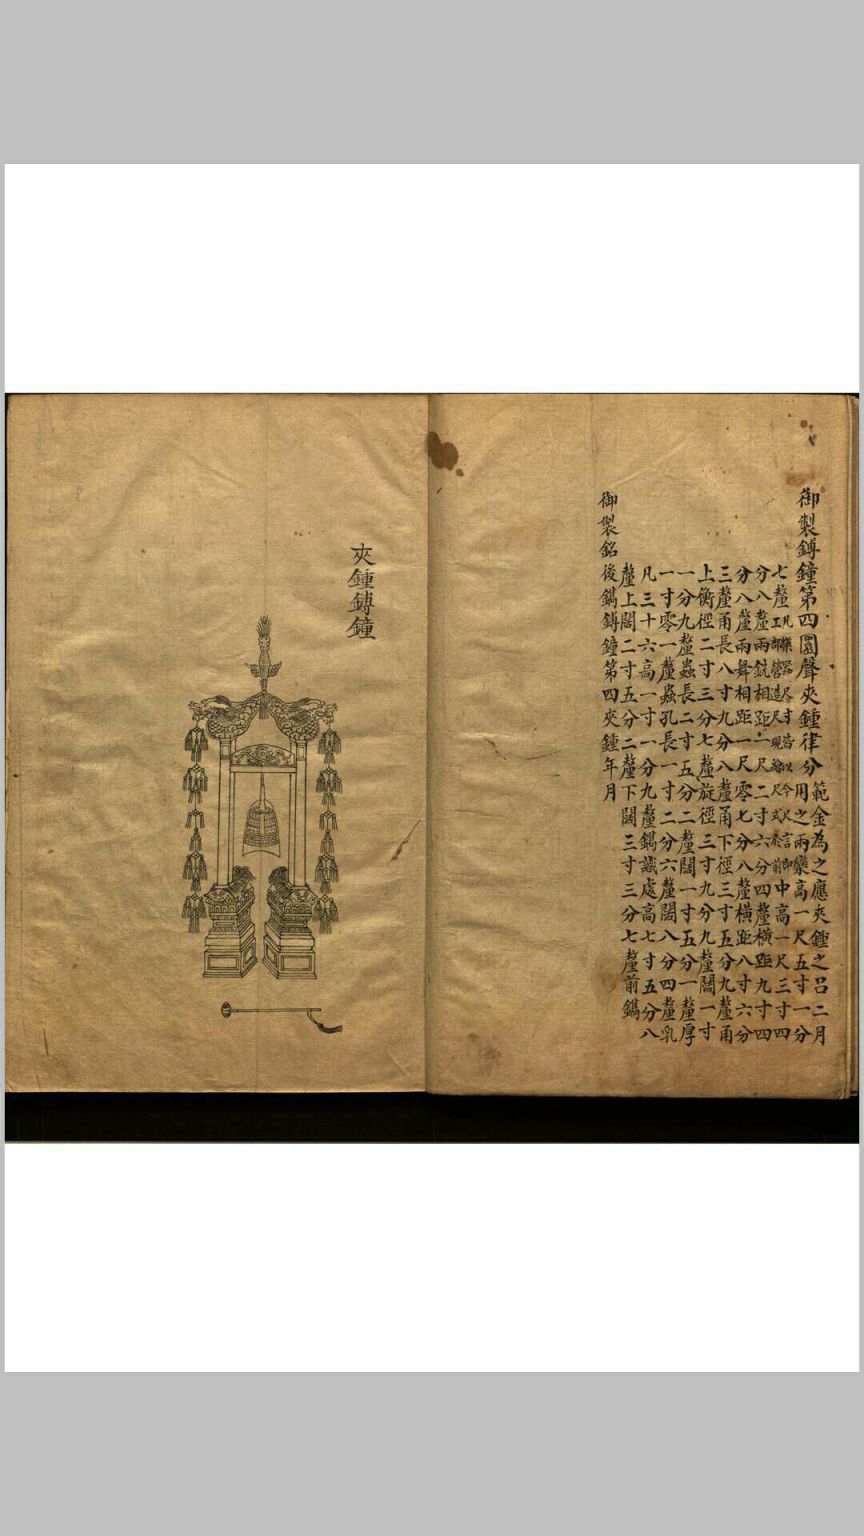 御製鎛鐘第四圜聲夾鍾律分
範金為之應夾鍾之呂二月
用之兩欒高一尺五寸一分
七釐
凡樂器尺寸皆以今尺言即
工部營造尺現繪尺式在前
中高一尺三寸四
分八釐兩銑相距一尺二寸六分四釐橫距九寸四
分八釐兩舞相距一尺零七分八釐橫距八寸六分
三釐甬長八寸九分八釐甬下徑三寸五分九釐甬
上衡徑二寸三分七釐旋徑三寸九分九釐闊一寸
一分九釐蟲長二寸五分二釐闊一寸五分一釐厚
一寸零一釐蟲孔長一寸二分六釐闊八分四釐乳
凡三十六高一寸一分九釐鐫識處高七寸五分八
釐上闊二寸五分二釐下闊三寸三分七釐前鐫
御製銘後鐫鎛鐘第四夾鍾年月
夾鍾鎛鐘